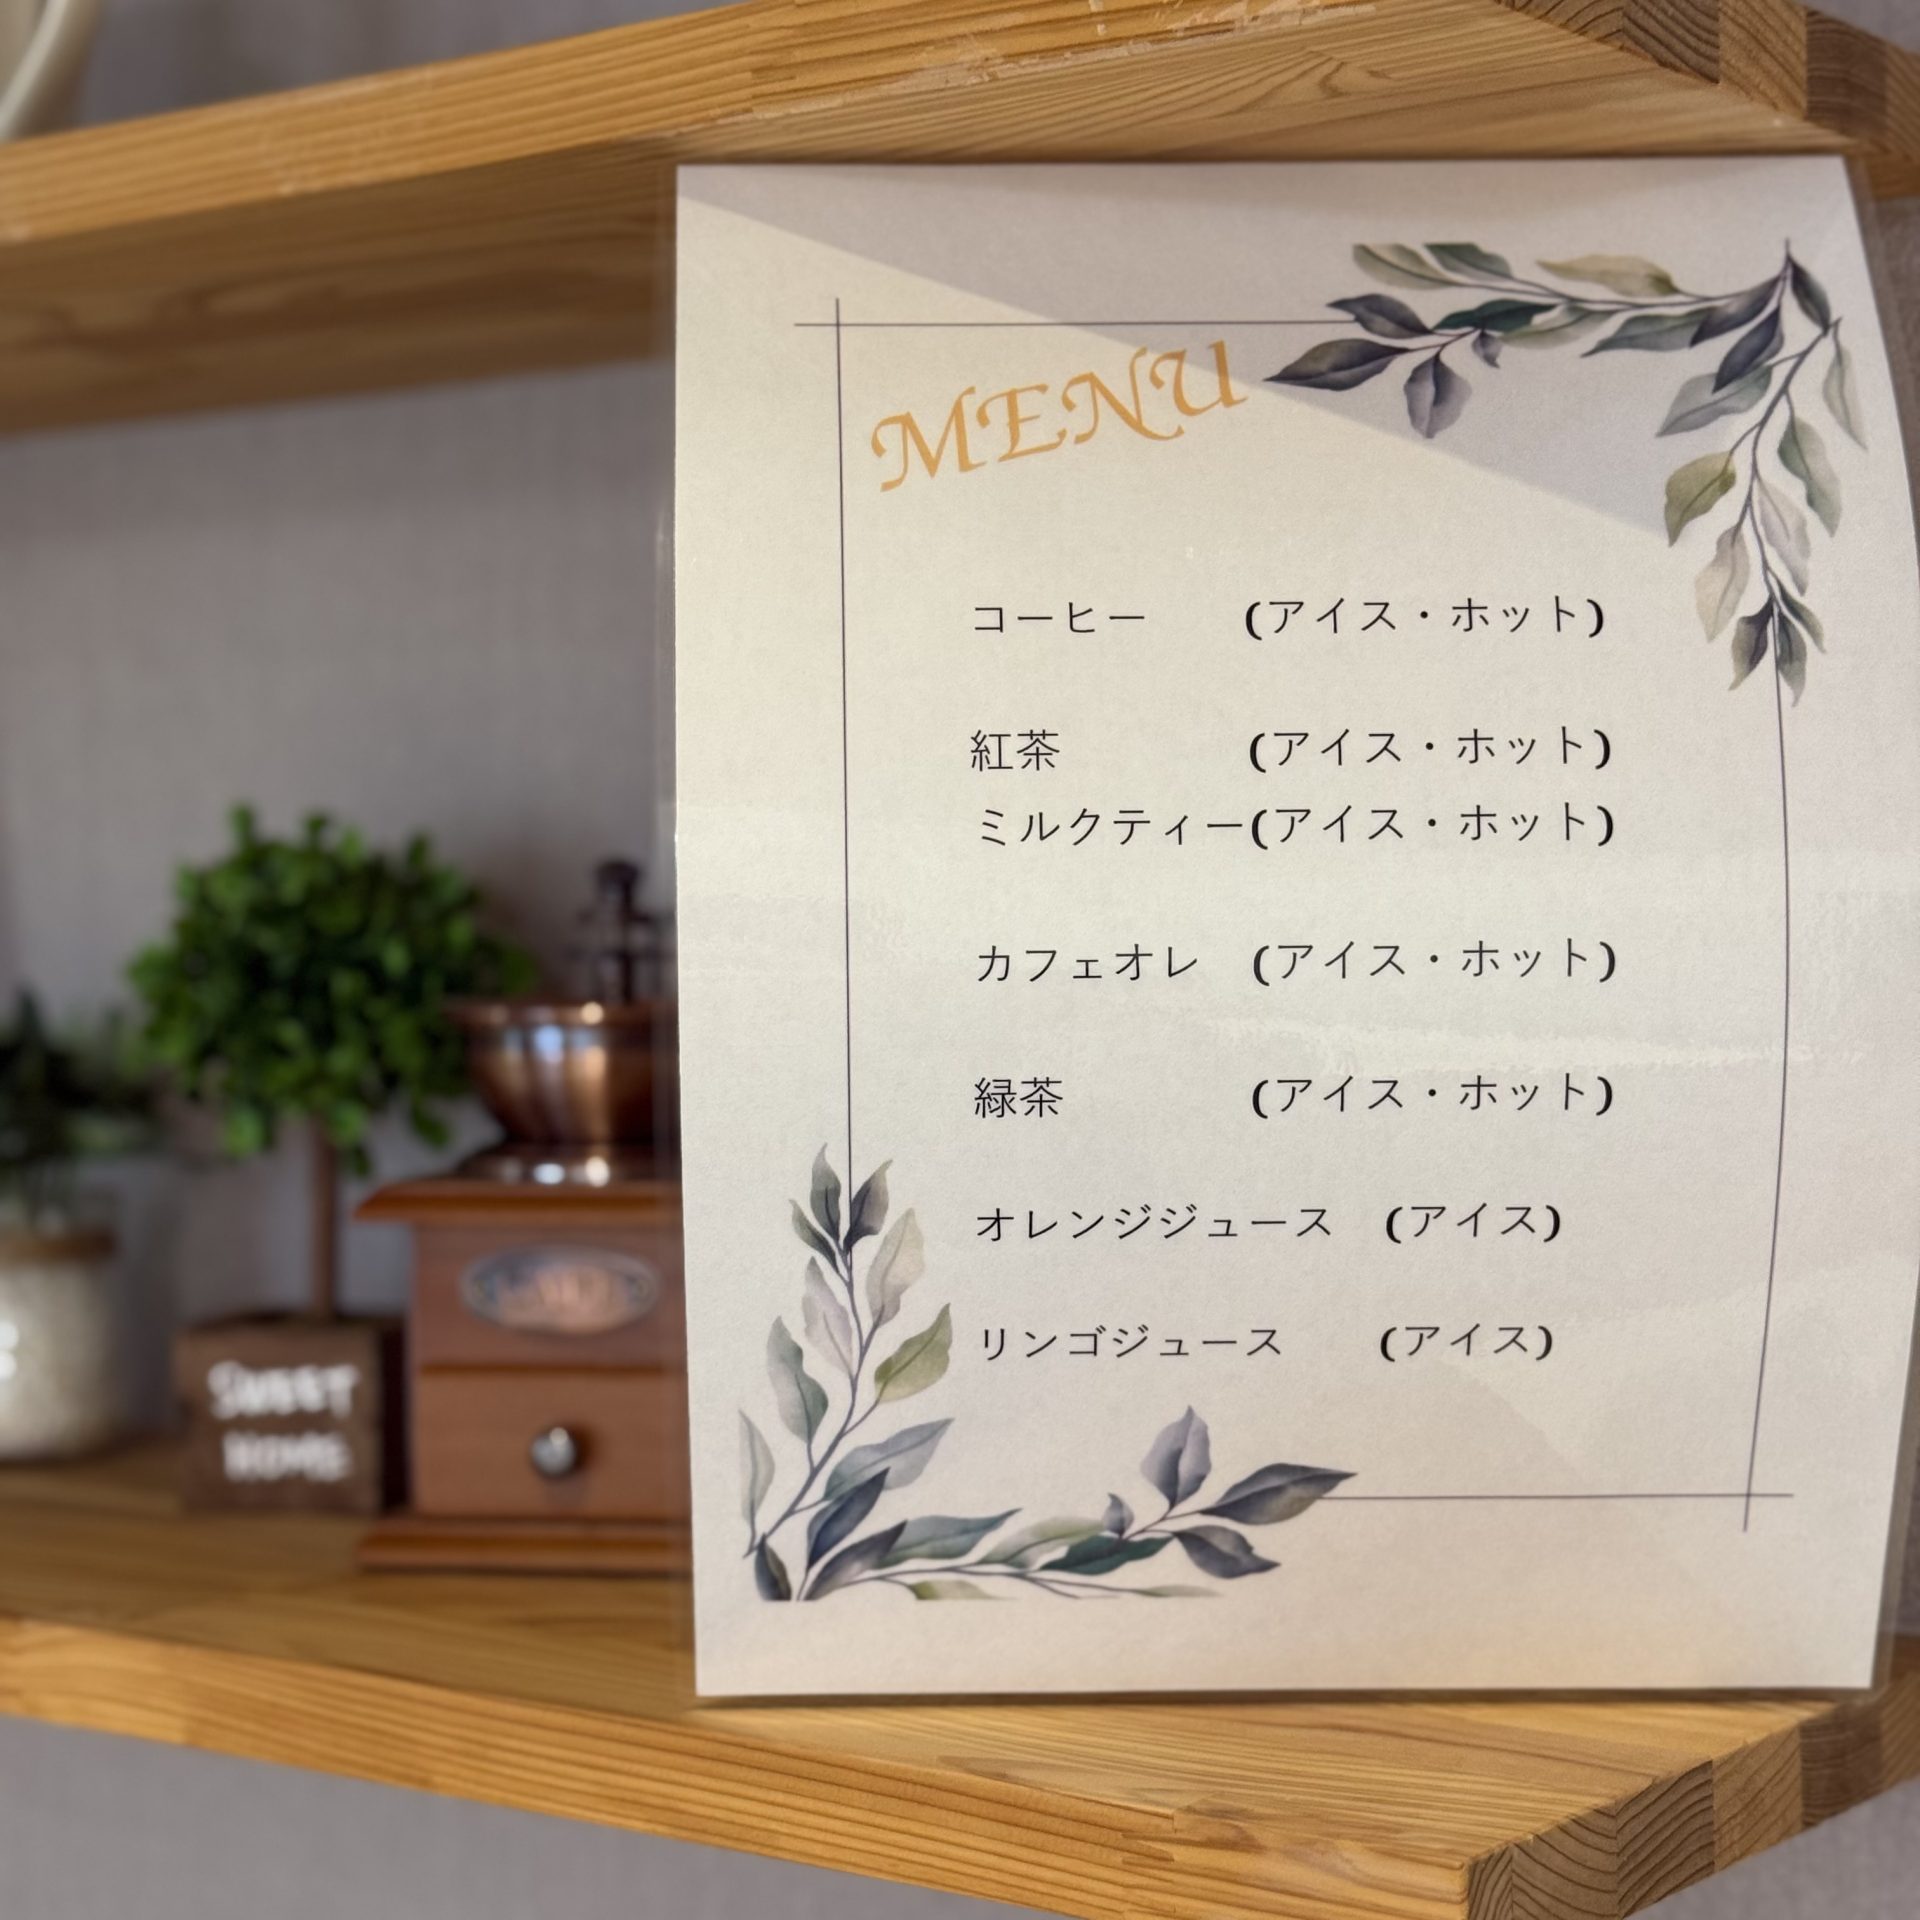 MENU
コーヒー (アイス・ホット)
紅茶 (アイス・ホット)
ミルクティー(アイス・ホット)
カフェオレ (アイス・ホット)
緑茶 (アイス・ホット)
オレンジジュース (アイス)
リンゴジュース (アイス)
SWEET
HOME